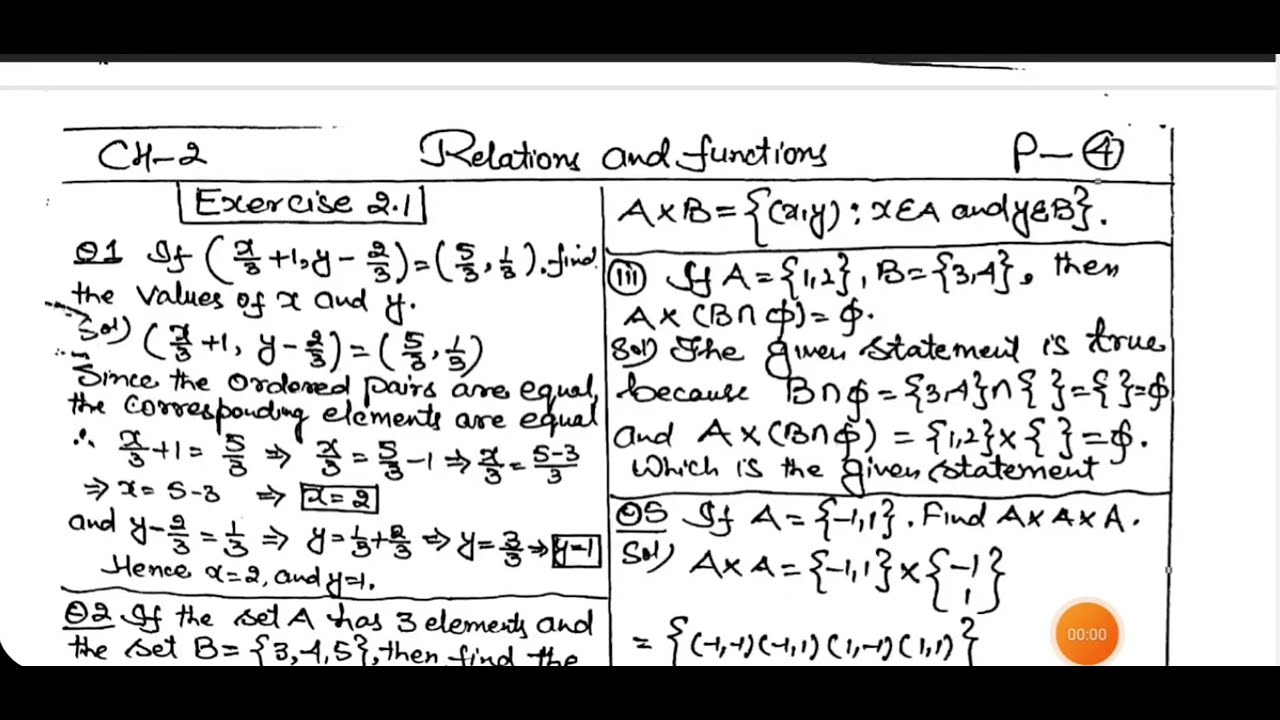 CH-2 Relations and functions P-④
Exercise 2.1
Q1 If (x/3 + 1, y - 2/3) = (5/3, 1/3). find
the values of x and y.
Sol) (x/3 + 1, y - 2/3) = (5/3, 1/3)
Since the ordered pairs are equal,
the corresponding elements are equal
∴ x/3 + 1 = 5/3 ⇒ x/3 = 5/3 - 1 ⇒ x/3 = 5-3/3
⇒ x = 5-3 ⇒ x = 2
and y - 2/3 = 1/3 ⇒ y = 1/3 + 2/3 ⇒ y = 3/3 ⇒ y=1
Hence x=2, and y=1.
Q2 If the set A has 3 elements and
the set B = {3,4,5}, then find the
A×B = {(x,y) : x∈A and y∈B}.
(iii) If A = {1,2}, B = {3,4}, then
A × (B∩ϕ) = ϕ.
Sol) The given statement is true
because B∩ϕ = {3,4}∩{ } = { } = ϕ
and A×(B∩ϕ) = {1,2}×{ } = ϕ.
Which is the given statement
Q5 If A = {-1,1}. Find A×A×A.
Sol) A×A = {-1,1} × {-1
1}
= {(-1,-1) (-1,1) (1,-1) (1,1)}
00:00